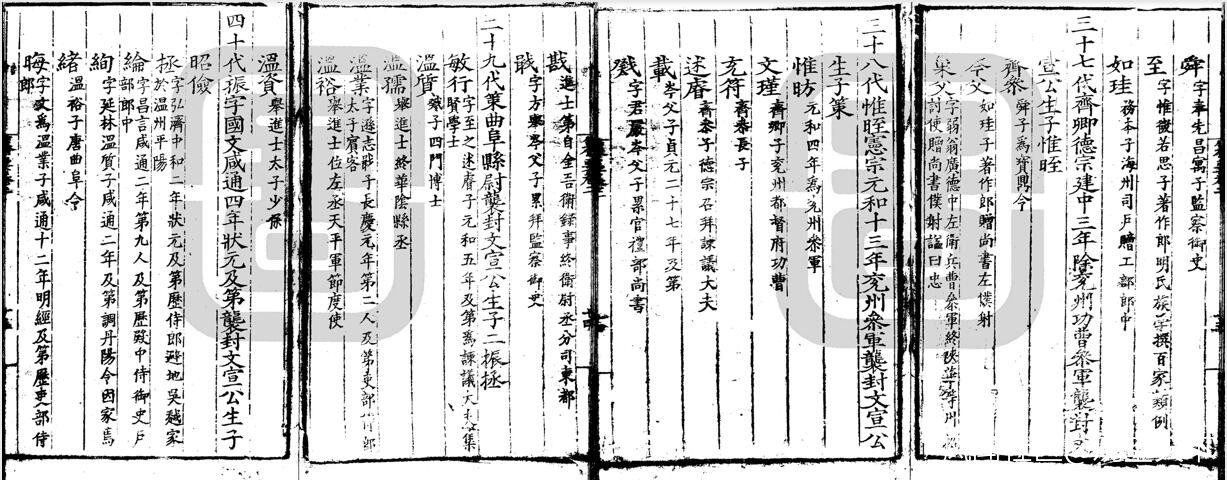 舜 字奉先昌寓子監察御史
至 字惟微若思子著作郎明氏族學撰百家類例
如珪 務本子海州司戶贈工部郎中
三十七代齊卿德宗建中三年除兗州功曹叅軍襲封文
宣公生子惟晊
齊叅 舜子爲寶鼎令
岑父 如珪子著作郎贈尚書左僕射
巢父 字弱翁廣德中左衛兵曹叅軍終陝華等州
討使贈尚書僕射謚曰忠
三十八代惟晊憲宗元和十三年兗州叅軍襲封文宣公
生子策
惟昉 元和四年爲兗州叅軍
文瑾 齊卿子兗州都督府功曹
克符 齊叅長子
述睿 齊叅子德宗召拜諫議大夫
載 岑父子貞元二十七年及第
戣 字君嚴岑父子累官禮部尚書
戡 進士第自金吾衛録事終衛尉丞分司東都
戢 字方舉岑父子累拜監察御史
三十九代策曲阜縣尉襲封文宣公生子二振拯
敏行 字至之述睿子元和五年及第爲諫議大夫集
賢學士
溫質 戣子四門博士
溫孺 舉進士終華陰縣丞
溫業 字遜志戢子長慶元年第二人及第吏部侍郎
太子賓客
溫裕 舉進士位左丞天平軍節度使
溫資 舉進士太子少保
四十代振字國文咸通四年狀元及第襲封文宣公生子
昭儉
拯 字弘濟中和二年狀元及第歷侍郎避地吳越家
於溫州平陽
綸 字昌言咸通二年第九人及第歷殿中侍御史戶
部郎中
絢 字延休溫質子咸通二年及第調丹陽令因家焉
緒 溫裕子唐曲阜令
晦 字文爲溫業子咸通十二年明經及第歷吏部侍
郎